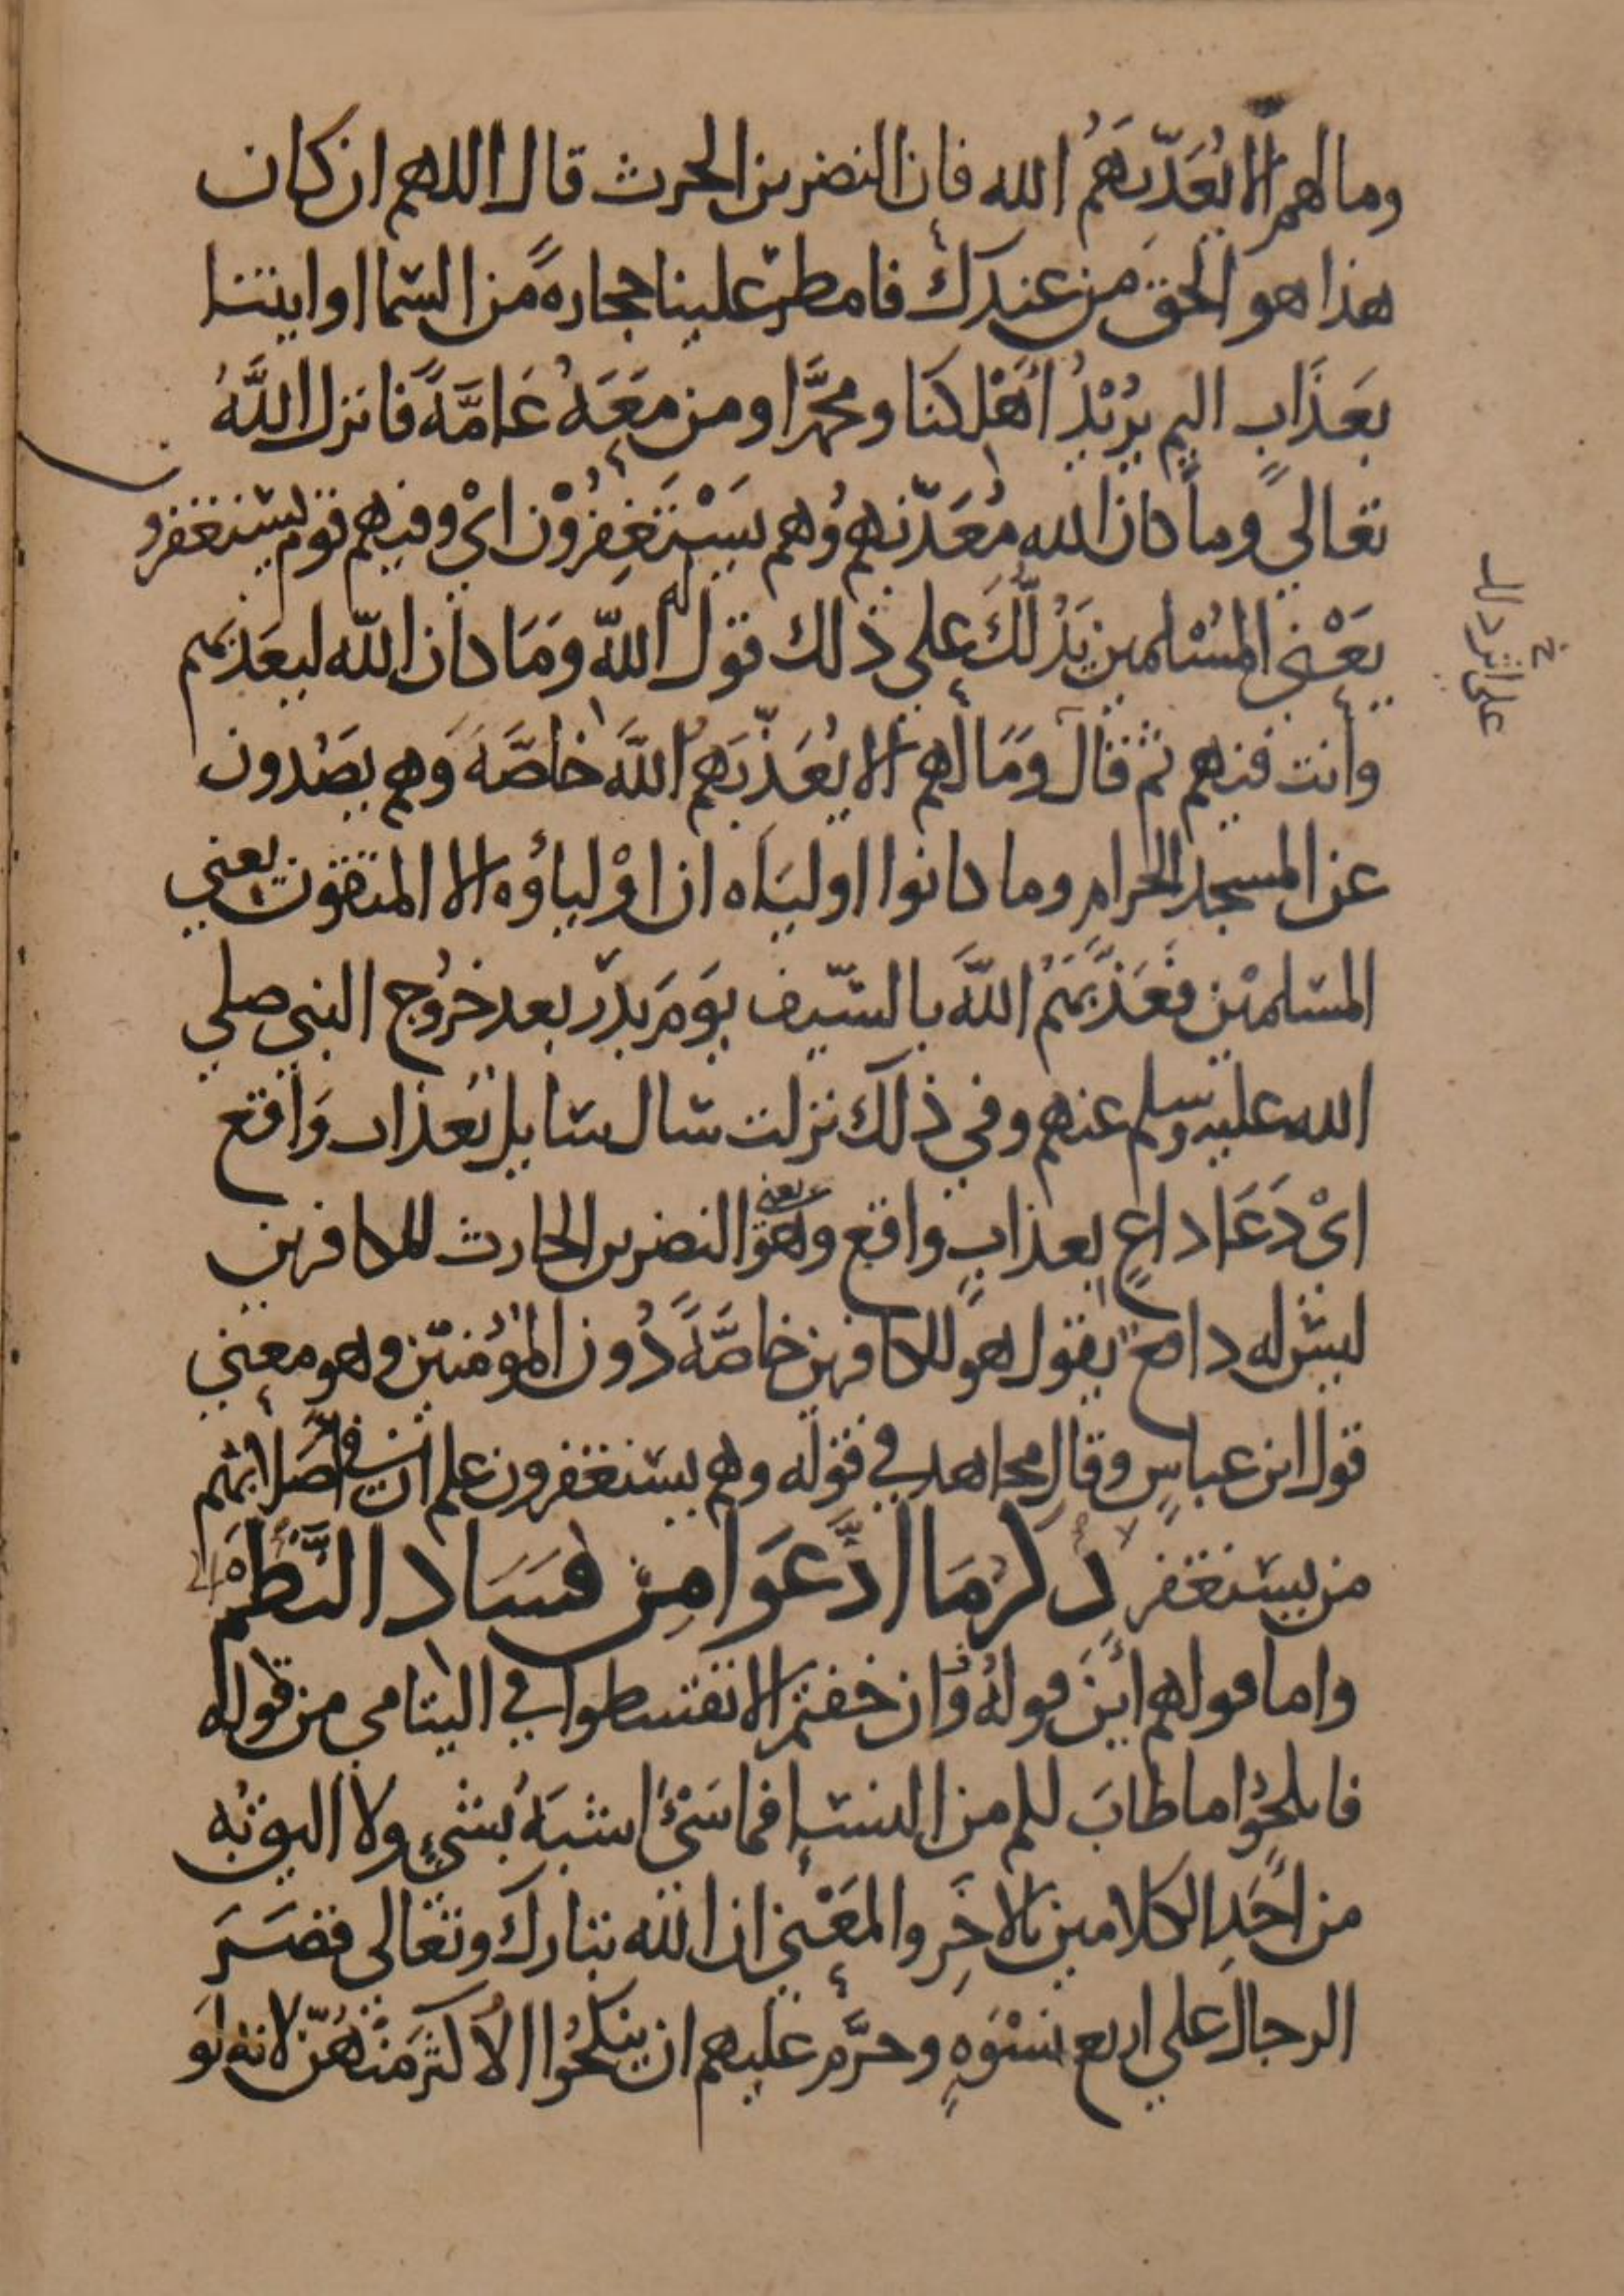 وما لهم الا يُعَذّبَهمُ الله فان النضر بن الحرث قال اللهم ان كان
هذا هو الحق من عندك فامطر علينا حجارةً من السّما او ايتنا
بعَذَابٍ اليم يُرْيدُ اَهْلِكنَا ومحمَّدا ومن مَعَهُ عَامَّةً فانزل اللَّهُ
تعالي وما كان الله مُعَذّبهم وُهم يَسْتَغفِرُوْن ايْ وفيهم قوم يستغفرو
يَعْني المُسْلمين يَدُلّكَ علي ذلك قول اللّه وَمَا كان اللّه ليعَذبَهم
وانت فيهم ثم قال وَمَا لهم الا يُعَذّبَهُم اللَّهَ خاصَّةً وَهم يصُدون
عن المسجد الحرام وما كانوا اوليَاه ان اوْلياؤُه الا المتقون يعني
المسلمْين فعَذّبَهُم اللَّهَ بالسّيف يَومَ بدْر بعد خرُوج النبي صلي
الله عليه وسلم عنهم وفي ذلك نزلت سال سايل بعَذاب وَاقع
ايْ دَعَا داعٍ بعذابٍ واقع وهو يعني النضر بن الحارث للكافرين
ليسَ له دافع يقول هو للكافرين خاصَّةً دُون المؤُمنيْن وهو معني
قول ابن عباسٍ وقال مجاهد في قوله وهم يستغفرون علم ان في اصْلابهم
من يستغفر ذِكرُ مَا ادَّعَوا مِن فسَاد النَّظْم
واما قولهم ايْنَ قولهُ وان خفتم الا تقسطوا في اليتامي من قوله
فانكحُوا ما طابَ لكم من النسَا فما شَيْءُ اشبَهُ بشيءٍ ولا اليق به
من احَدِ الكلامين بالاخَرِ والمعْني ان الله تبارك وتعالي قصَرَ
الرجال علي اربع نسْوَةٍ وحرَّم عليهم ان ينكحُوا الاكثر منهُنّ لانه لو